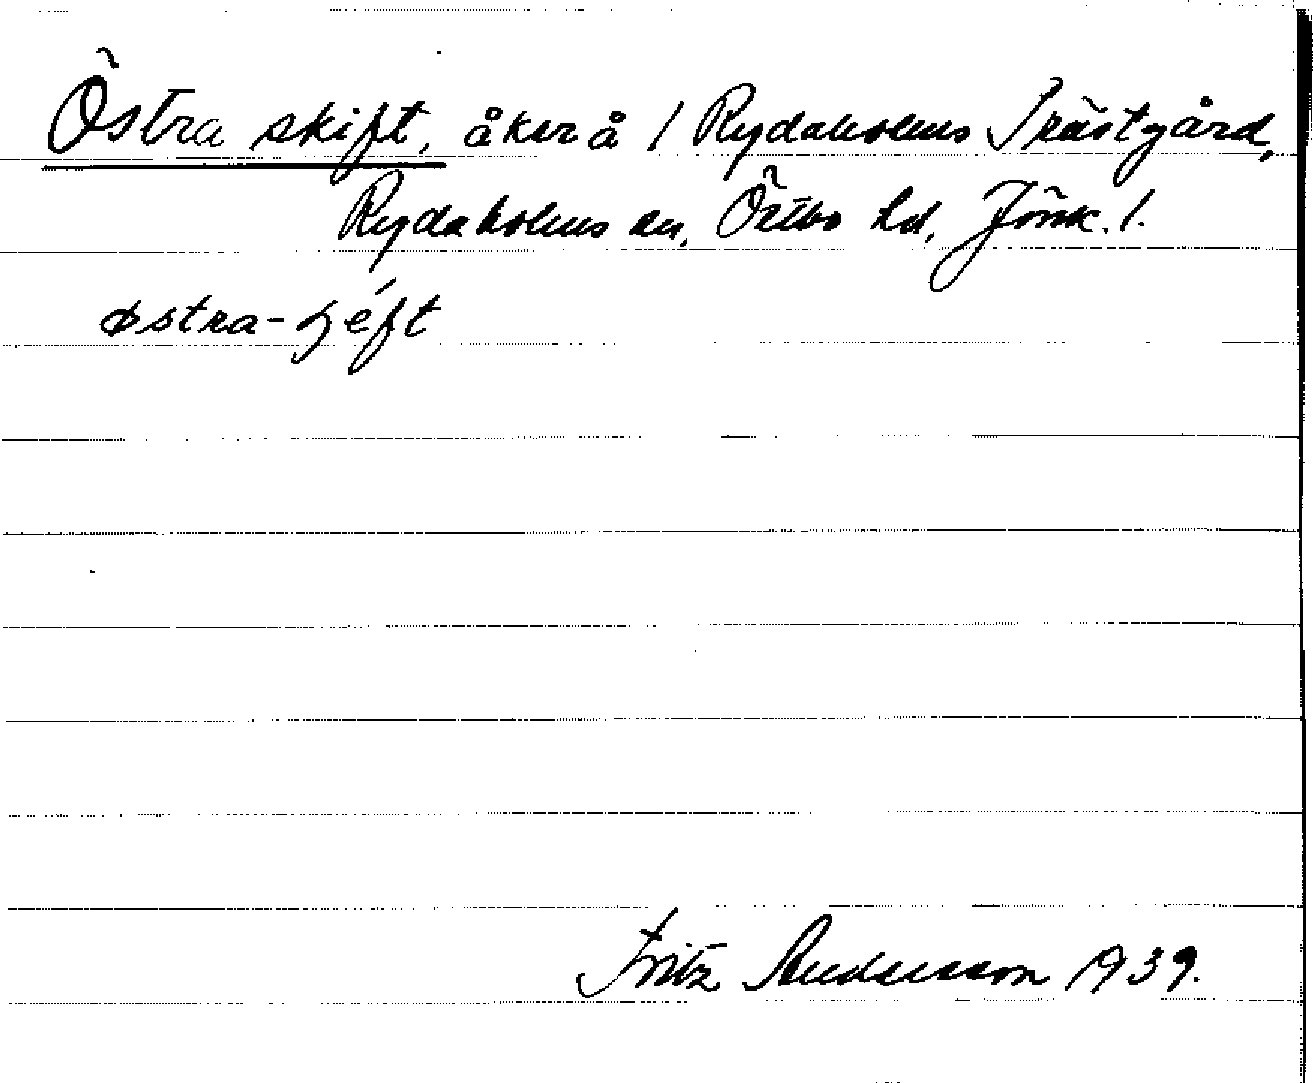 Östra skift, åker å 1 Rydaholms Prästgård,
Rydaholms sn, Östbo hd, Jönk. l.
østra-ʃéft
Fritz Andersson 1939.